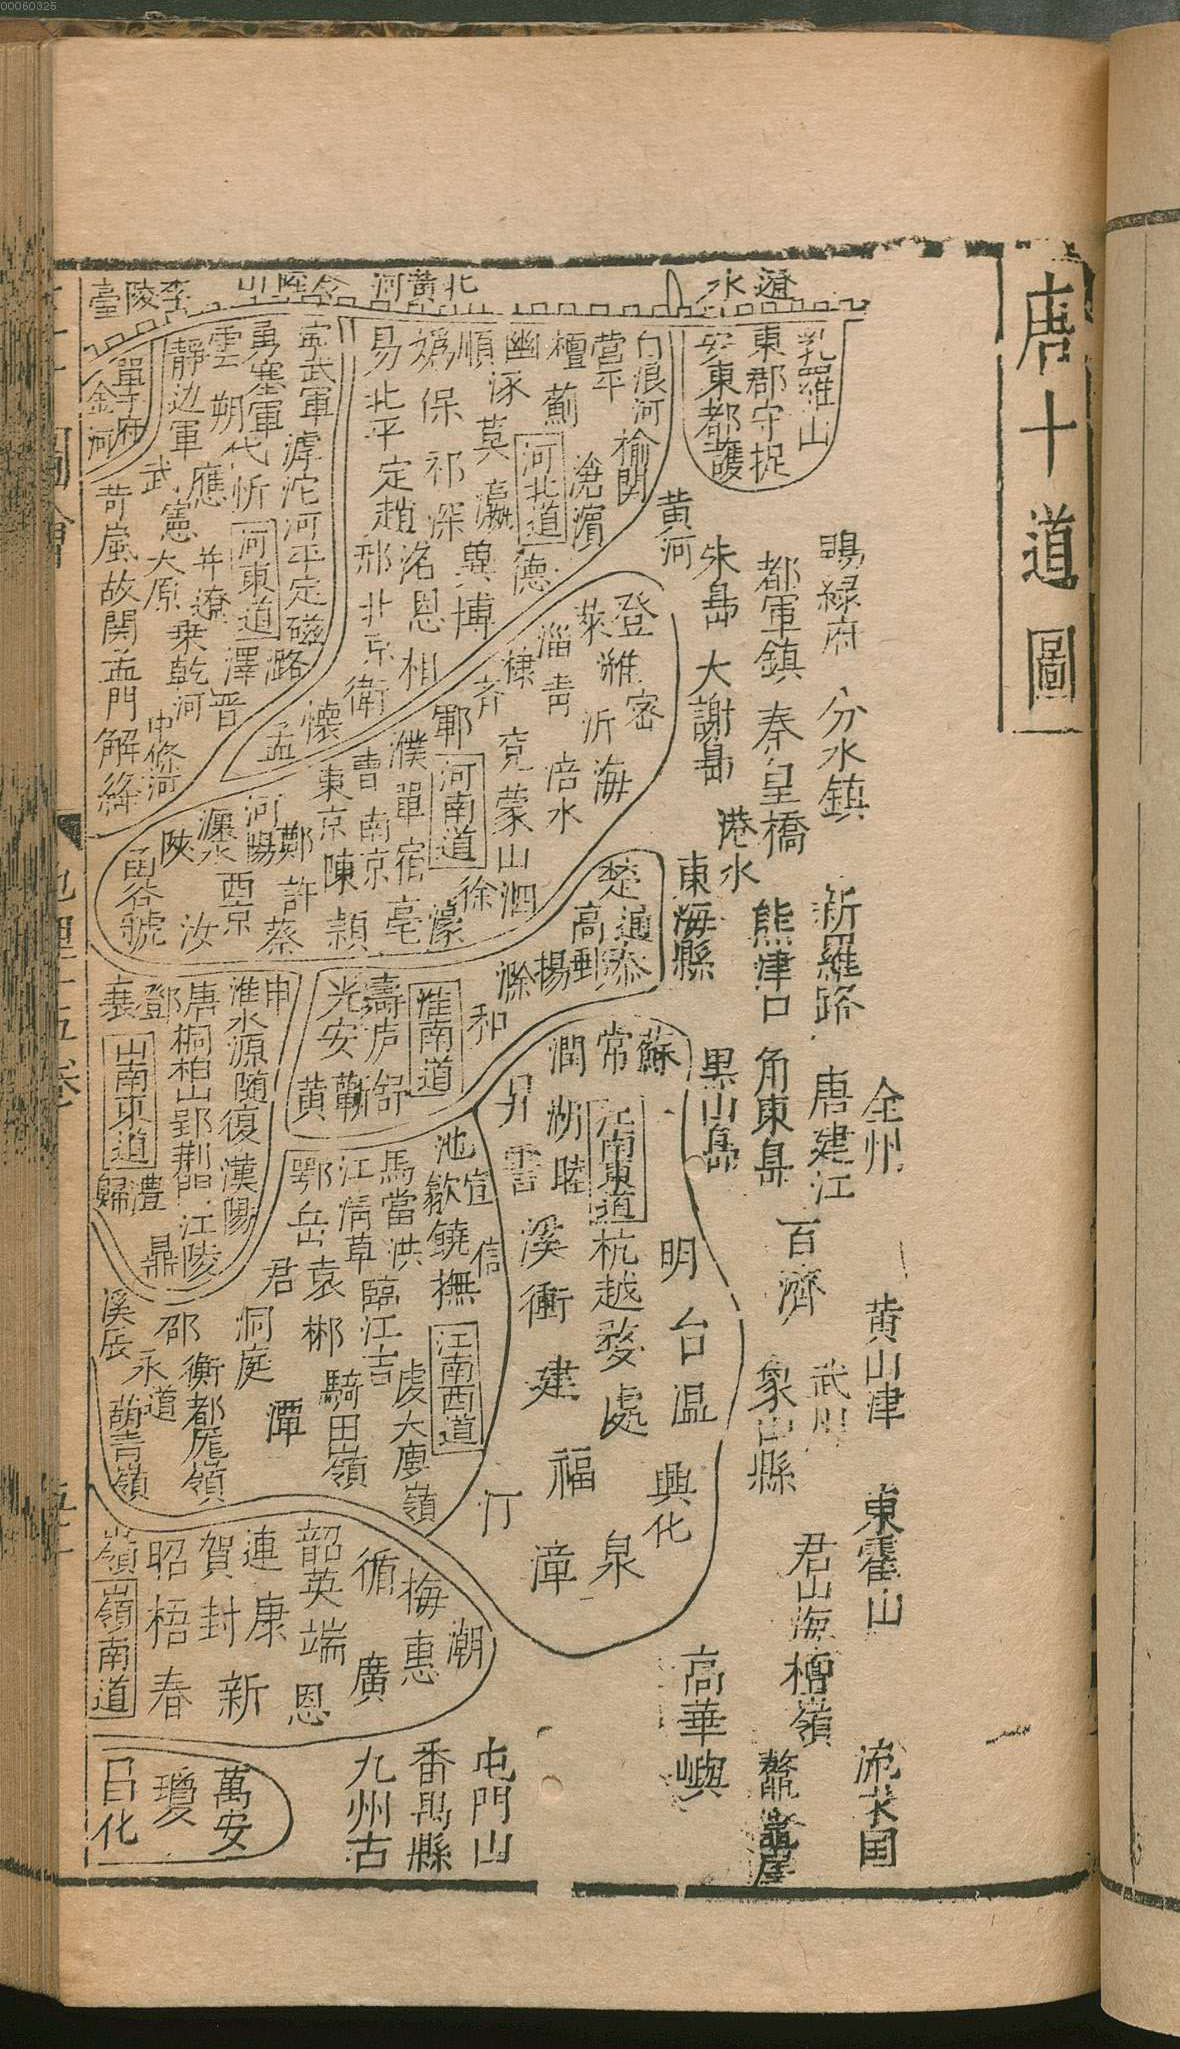 00060325
唐十道圖
遼水
北黃河
李陵臺
乳羅山
東郡守捉
安東都護
鴨綠府
分水鎮
新羅路
唐建江
全州
百濟
黄山津
武州
東霍山
君山海
檀嶺
流求国
都軍鎮
秦皇橋
熊津口
角東島
象山縣
黄河
朱島
大謝島
港水
東海縣
果山島
高華嶼
白浪河
榆関
營平
檀薊
滄濱
幽涿莫瀛
河北道
德
順
冀博
媯保祁深
洺恩相
易北平定趙
邢北京衛
懷
孟
寧武軍
滹沱河平定磁潞
勇塞軍
代忻
河東道
澤
雲朔應
并遼
晋
靜边軍
武憲
太原
乗乾河
中條河
單于府
金河
苛嵐故関孟門解絳
登濰密
萊沂海
淄青
倍水
棣
齐
兗蒙山泗
鄆
河南道
徐
濮單宿亳
濠
曹南京
東京陳穎
鄭許蔡
河陽
西京
汝
陝
函谷虢
楚通泰
高郵
揚
滁
和
淮南道
壽庐舒
蘄
光安黄
申
淮水源随復漢陽
唐桐柏山郢荆門江陵
鄧
襄
山南東道
歸
澧
鼎
蘇
常
潤
江南東道
湖睦
昇
杭越婺處
明台温
溪衢建
福
興化
泉
漳
汀
池歙饒撫
宣
信
江南西道
馬當洪
臨江吉
虔大庾嶺
江清草
鄂岳袁郴
騎田嶺
君
洞庭
潭
溪辰
邵
永道
衡都厖嶺
萌青嶺
潮
梅惠
循
廣
韶英端恩
連康
賀封新
昭梧春
嶺
嶺南道
萬安
瓊
昌化
屯門山
番禺縣
九州古